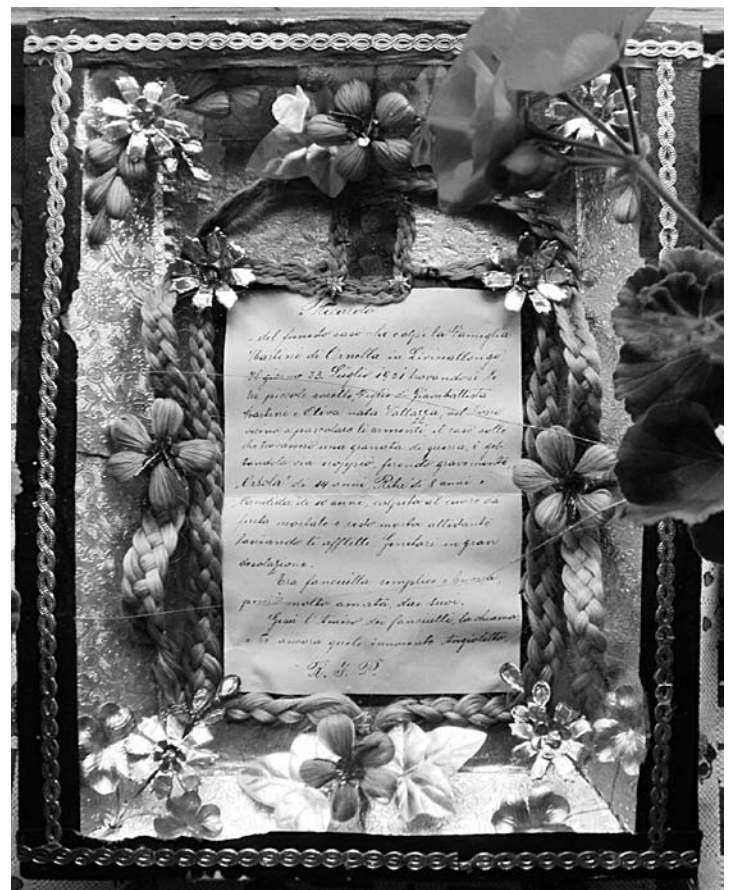 Ricordo
del funesto caso che colpì la Famiglia
Martini di Ornella in Livinallongo
Il giorno 23 Luglio 1921 trovandosi le
tre piccole sorelle, Figlie di Giambattista
Martini e Oliva nata Vallazza, nel
a pascolare li armenti il caso volle
che trovarono una granata di guerra, e get-
tandola via scoppiò, ferendo gravemente
Orsola di 14 anni Rita di 8 anni e
Candida di 10 anni, colpita al cuore da
ferita mortale e restò morta all'istante
lasciando li afflitti Genitori in gran
desolazione.
Era fanciulla semplice e buona,
perciò molto amata, dai suoi.
Gesù l'Amico dei fanciulli, la chiamò
a Sè ancora quale innocente Angioletto.
R. I. P.